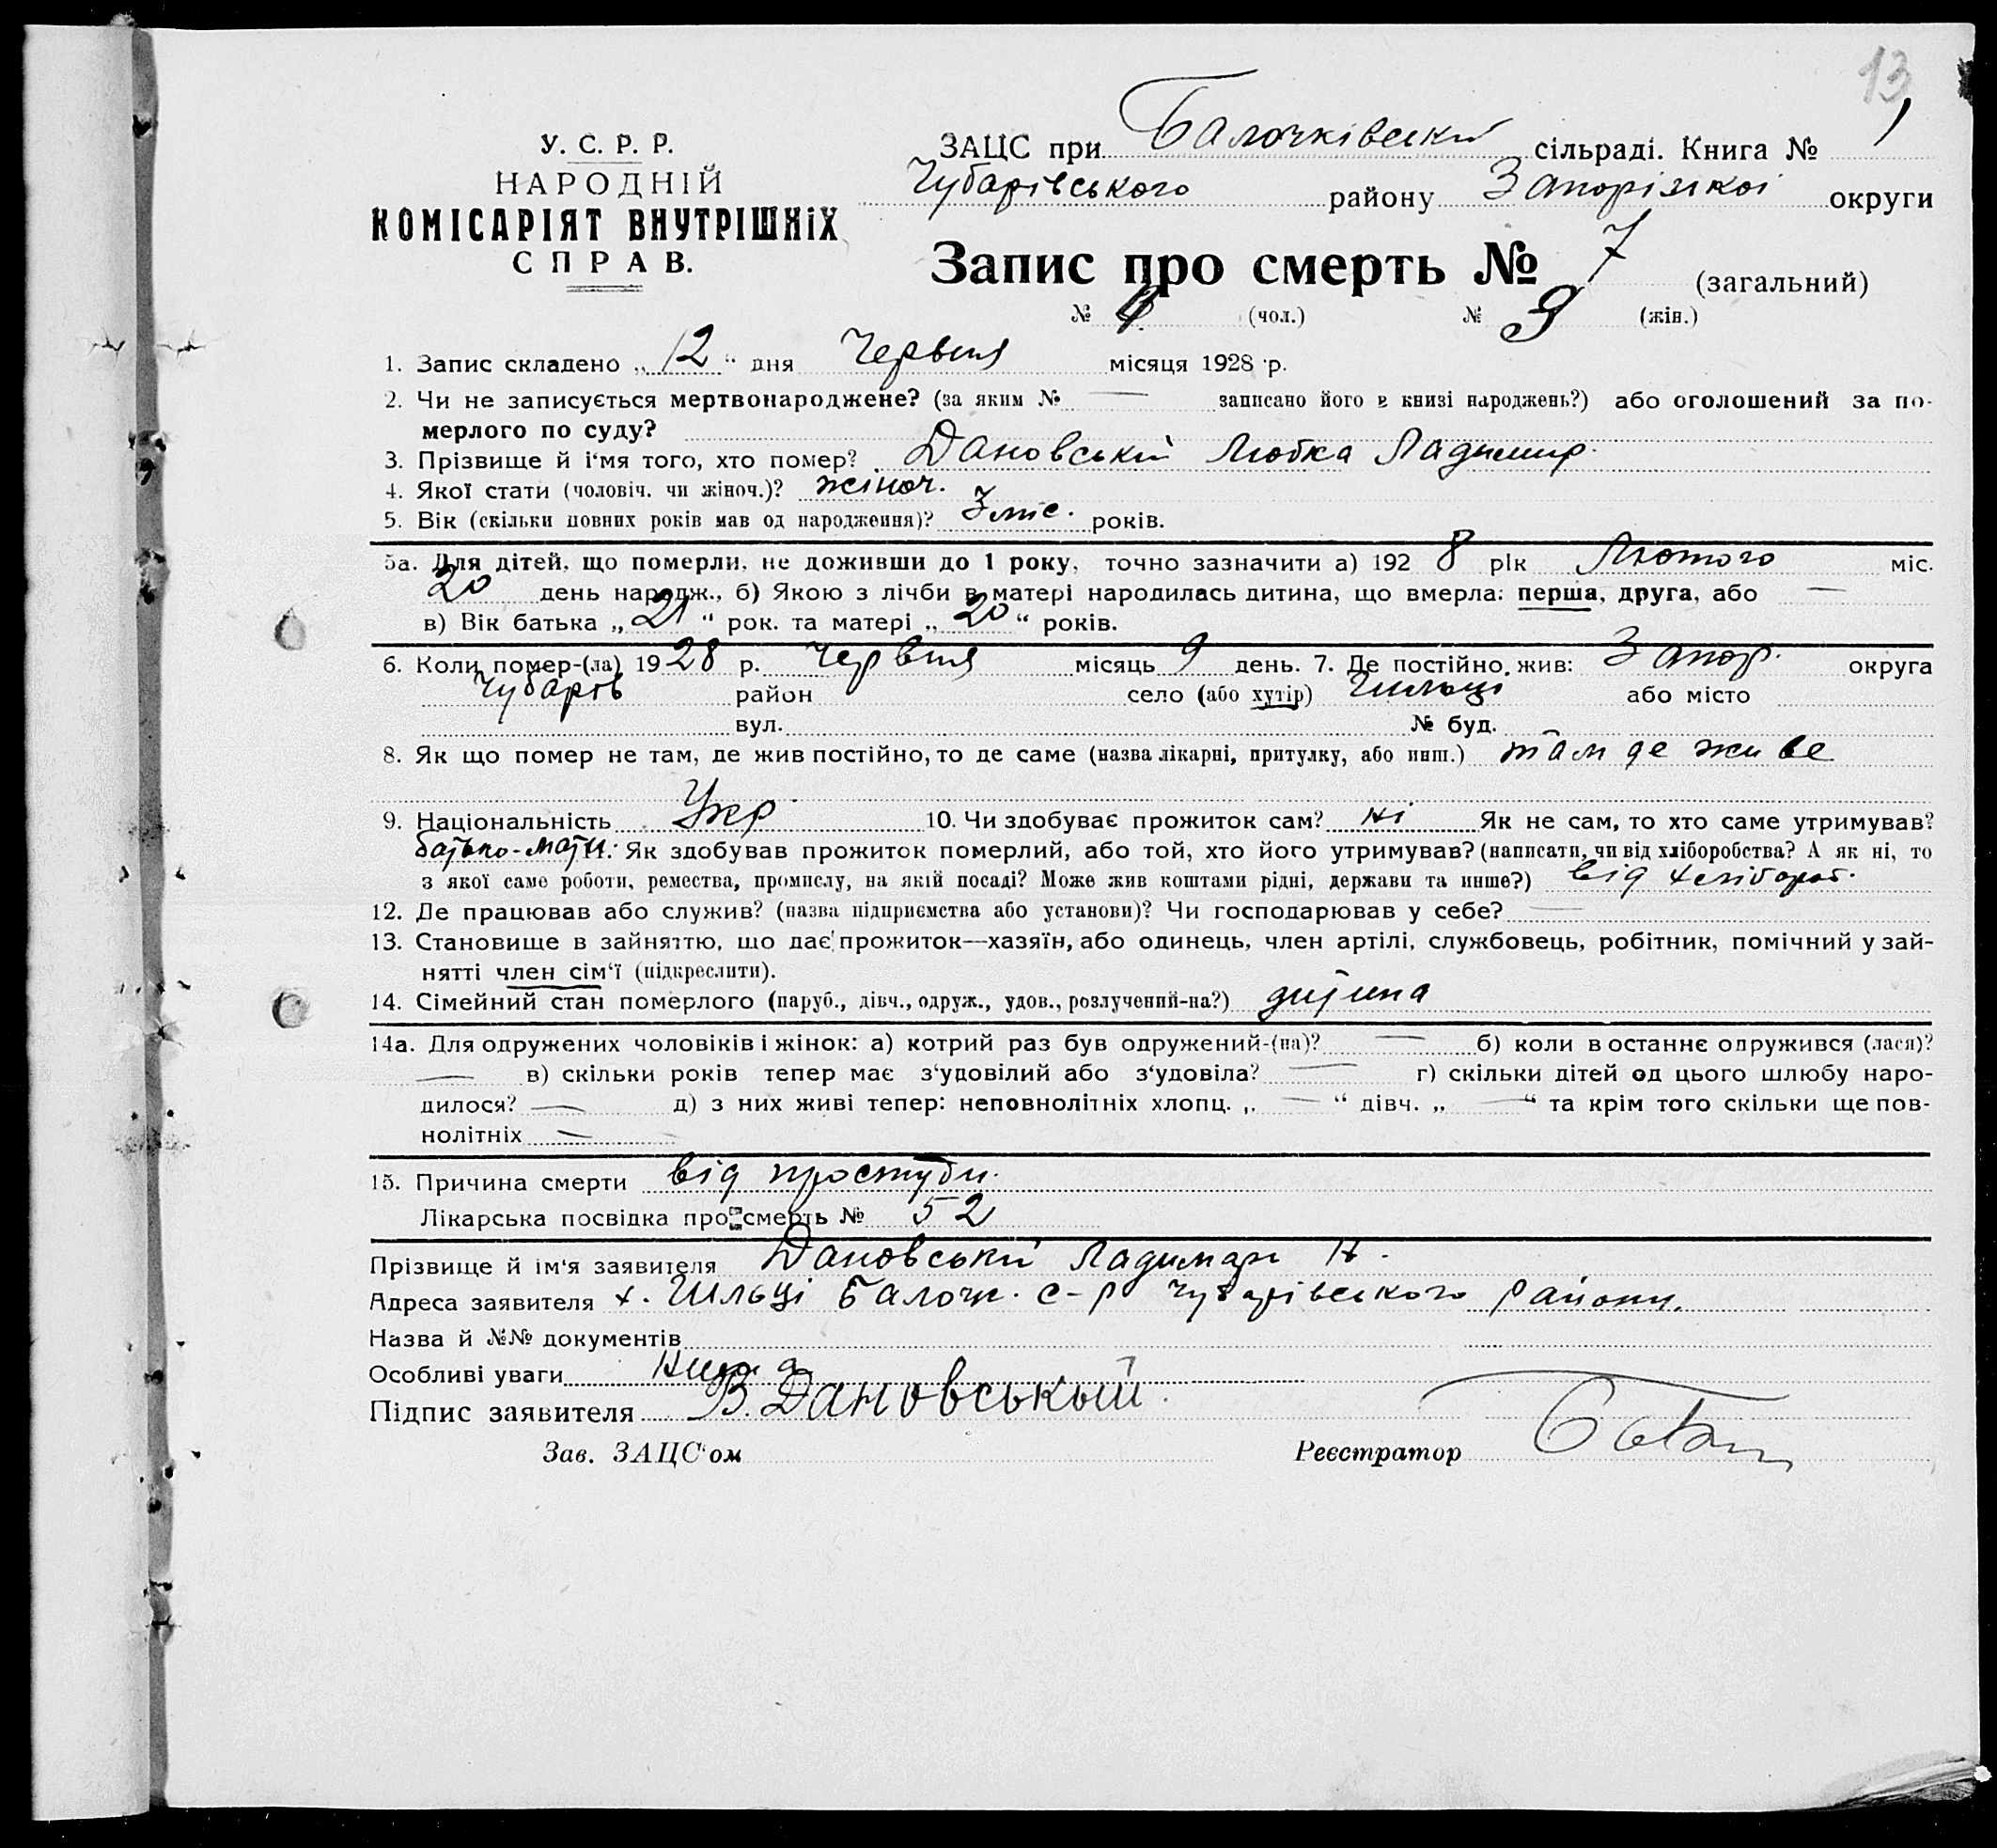 13
У. С. Р. Р.
НАРОДНІЙ
КОМІСАРІЯТ ВНУТРІШНІХ
СПРАВ.
ЗАЦС при Балочківській сільраді. Книга № 1
Чубарівського району Запорізької округи
Запис про смерть № 7 (загальний)
№ (чол.) № 3 (жін.)
1. Запис складено „ 12 “ дня Червня місяця 1928 р.
2. Чи не записується мертвонароджене? (за яким № — записано його в книзі народжень?) або оголошений за по-
мерлого по суду?
3. Прізвище й і'мя того, хто помер? Дановській Любка Ладимир.
4. Якої стати (чоловіч. чи жіноч.)? жіноч.
5. Вік (скільки повних років мав од народження)? 3 міс. років.
5а. Для дітей, що померли, не доживши до 1 року, точно зазначити а) 192 8 рік Лютого міс.
20 день народж., б) Якою з лічби в матері народилась дитина, що вмерла: перша, друга, або —
в) Вік батька „ 21 “ рок. та матері „ 20 “ років.
6. Коли помер-(ла) 19 28 р. Червня місяць 9 день. 7. Де постійно жив: Запор. округа
Чубарів район село (або хутір) Гильці або місто
вул. № буд.
8. Як що помер не там, де жив постійно, то де саме (назва лікарні, притулку, або инш.) там де живе
9. Національність Укр 10. Чи здобуває прожиток сам? ні Як не сам, то хто саме утримував?
батько-мати. Як здобував прожиток померлий, або той, хто його утримував? (написати, чи від хліборобства? А як ні, то
з якої саме роботи, ремества, промислу, на якій посаді? Може жив коштами рідні, держави та инше?) від хлібороб.
12. Де працював або служив? (назва підприємства або установи)? Чи господарював у себе? —
13. Становище в зайняттю, що дає прожиток—хазяїн, або одинець, член артілі, службовець, робітник, помічний у зай-
нятті член сім'ї (підкреслити).
14. Сімейний стан померлого (паруб., дівч., одруж., удов., розлучений-на?) дитина
14а. Для одружених чоловіків і жінок: а) котрий раз був одружений-(на)? — б) коли востаннє одружився (лася)?
— в) скільки років тепер має з'удовілий або з'удовіла? — г) скільки дітей од цього шлюбу наро-
дилося? — д) з них живі тепер: неповнолітніх хлопц. „ — “ дівч. „ — “ та крім того скільки ще пов-
нолітніх —
15. Причина смерти від простуди.
Лікарська посвідка про смерть № 52
Прізвище й ім'я заявителя Дановській Ладимар Н.
Адреса заявителя х. Гильці Балочк. с-р Чубарівського району.
Назва й №№ документів
Особливі уваги нима
Підпис заявителя В. Дановськый
Зав. ЗАЦС'ом Реєстратор